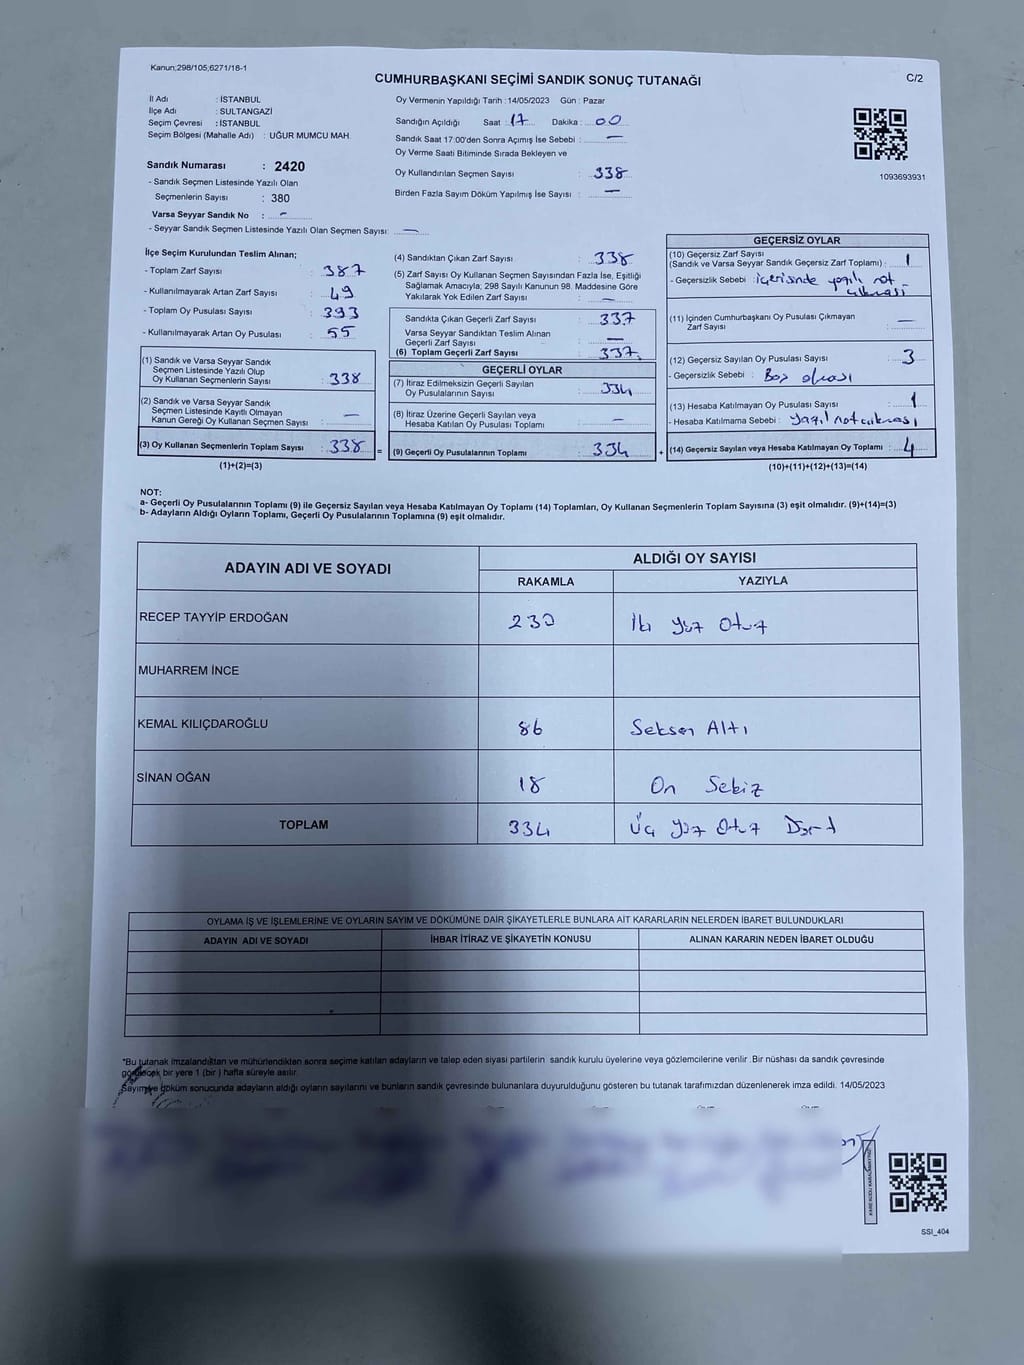 Kanun;298/105;6271/16-1
CUMHURBAŞKANI SEÇİMİ SANDIK SONUÇ TUTANAĞI
C/2
İl Adı : İSTANBUL
İlçe Adı : SULTANGAZİ
Seçim Çevresi : İSTANBUL
Seçim Bölgesi (Mahalle Adı) : UĞUR MUMCU MAH.
Sandık Numarası : 2420
- Sandık Seçmen Listesinde Yazılı Olan
Seçmenlerin Sayısı : 380
Varsa Seyyar Sandık No : -
- Seyyar Sandık Seçmen Listesinde Yazılı Olan Seçmen Sayısı: —
Oy Vermenin Yapıldığı Tarih : 14/05/2023 Gün : Pazar
Sandığın Açıldığı Saat : 17 Dakika : 00
Sandık Saat 17:00'den Sonra Açımış İse Sebebi : —
Oy Verme Saati Bitiminde Sırada Bekleyen ve
Oy Kullandırılan Seçmen Sayısı : 338
Birden Fazla Sayım Döküm Yapılmış İse Sayısı : —
1093693931
İlçe Seçim Kurulundan Teslim Alınan;
- Toplam Zarf Sayısı : 387
- Kullanılmayarak Artan Zarf Sayısı : 49
- Toplam Oy Pusulası Sayısı : 393
- Kullanılmayarak Artan Oy Pusulası : 55
(1) Sandık ve Varsa Seyyar Sandık
Seçmen Listesinde Yazılı Olup
Oy Kullanan Seçmenlerin Sayısı : 338
(2) Sandık ve Varsa Seyyar Sandık
Seçmen Listesinde Kayıtlı Olmayan
Kanun Gereği Oy Kullanan Seçmen Sayısı : —
(3) Oy Kullanan Seçmenlerin Toplam Sayısı : 338 =
(1)+(2)=(3)
(4) Sandıktan Çıkan Zarf Sayısı : 338
(5) Zarf Sayısı Oy Kullanan Seçmen Sayısından Fazla İse, Eşitliği
Sağlamak Amacıyla; 298 Sayılı Kanunun 98. Maddesine Göre
Yakılarak Yok Edilen Zarf Sayısı : —
Sandıkta Çıkan Geçerli Zarf Sayısı : 337
Varsa Seyyar Sandıktan Teslim Alınan
Geçerli Zarf Sayısı : —
(6) Toplam Geçerli Zarf Sayısı : 337
GEÇERLİ OYLAR
(7) İtiraz Edilmeksizin Geçerli Sayılan
Oy Pusulalarının Sayısı : 334
(8) İtiraz Üzerine Geçerli Sayılan veya
Hesaba Katılan Oy Pusulası Toplamı : —
(9) Geçerli Oy Pusulalarının Toplamı : 334 +
GEÇERSİZ OYLAR
(10) Geçersiz Zarf Sayısı
(Sandık ve Varsa Seyyar Sandık Geçersiz Zarf Toplamı) : 1
- Geçersizlik Sebebi : içerisinde yazılı not
çıkması
(11) İçinden Cumhurbaşkanı Oy Pusulası Çıkmayan
Zarf Sayısı : —
(12) Geçersiz Sayılan Oy Pusulası Sayısı : 3
- Geçersizlik Sebebi : Boş olması
(13) Hesaba Katılmayan Oy Pusulası Sayısı : 1
- Hesaba Katılmama Sebebi : Yazılı not çıkması
(14) Geçersiz Sayılan veya Hesaba Katılmayan Oy Toplamı : 4
(10)+(11)+(12)+(13)=(14)
NOT:
a- Geçerli Oy Pusulalarının Toplamı (9) ile Geçersiz Sayılan veya Hesaba Katılmayan Oy Toplamı (14) Toplamları, Oy Kullanan Seçmenlerin Toplam Sayısına (3) eşit olmalıdır. (9)+(14)=(3)
b- Adayların Aldığı Oyların Toplamı, Geçerli Oy Pusulalarının Toplamına (9) eşit olmalıdır.
ADAYIN ADI VE SOYADI
ALDIĞI OY SAYISI
RAKAMLA YAZIYLA
RECEP TAYYİP ERDOĞAN 230 İki Yüz Otuz
MUHARREM İNCE
KEMAL KILIÇDAROĞLU 86 Seksen Altı
SİNAN OĞAN 18 On Sekiz
TOPLAM 334 Üç Yüz Otuz Dört
OYLAMA İŞ VE İŞLEMLERİNE VE OYLARIN SAYIM VE DÖKÜMÜNE DAİR ŞİKAYETLERLE BUNLARA AİT KARARLARIN NELERDEN İBARET BULUNDUKLARI
ADAYIN ADI VE SOYADI İHBAR İTİRAZ VE ŞİKAYETİN KONUSU ALINAN KARARIN NEDEN İBARET OLDUĞU
*Bu tutanak imzalandıktan ve mühürlendikten sonra seçime katılan adayların ve talep eden siyasi partilerin sandık kurulu üyelerine veya gözlemcilerine verilir .Bir nüshası da sandık çevresinde
görülecek bir yere 1 (bir ) hafta süreyle asılır.
Sayım ve döküm sonucunda adayların aldığı oyların sayılarını ve bunların sandık çevresinde bulunanlara duyurulduğunu gösteren bu tutanak tarafımızdan düzenlenerek imza edildi. 14/05/2023
SSI_404